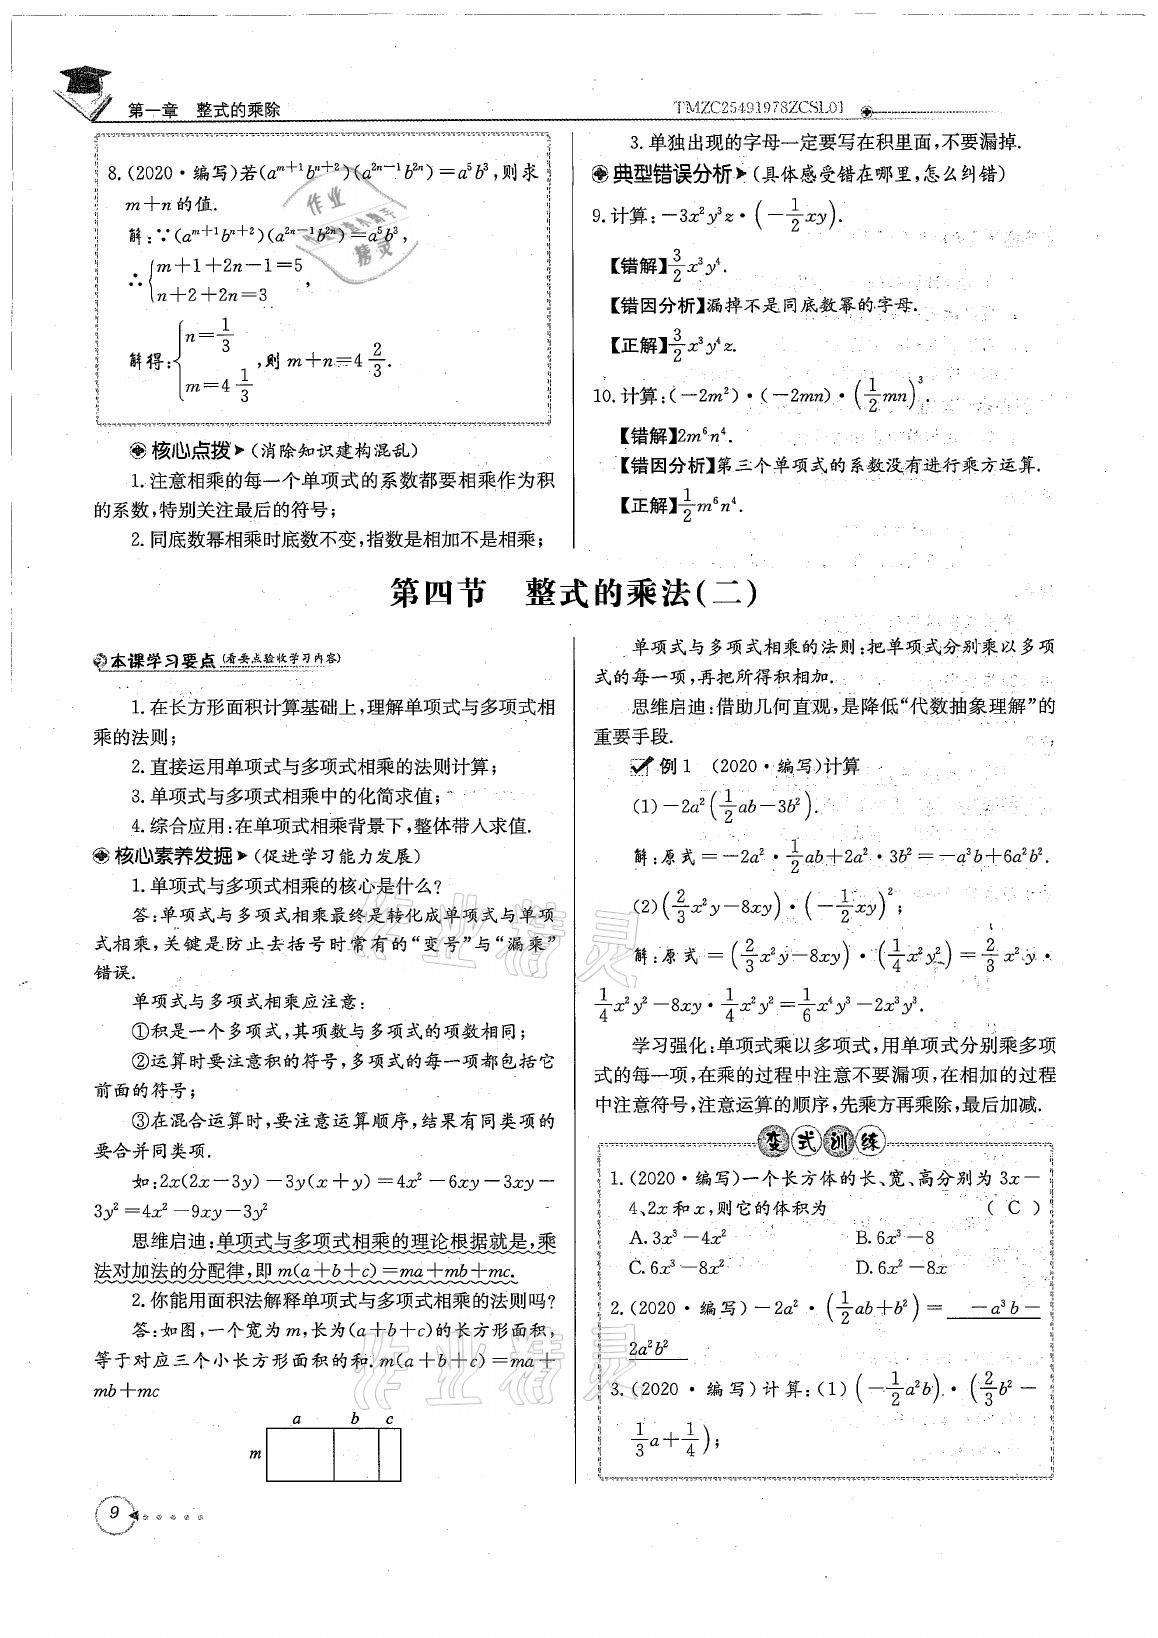 第一章 整式的乘除
TMZC25491978ZCSL01
8.(2020·编写)若(a^{m+1}b^{n+2})(a^{2n-1}b^{2n})=a^5b^3,则求
m+n的值.
解:∵(a^{m+1}b^{n+2})(a^{2n-1}b^{2n})=a^5b^3,
∴{m+1+2n-1=5
n+2+2n=3,
解得:{n=1/3
m=4 1/3,则m+n=4 2/3.
核心点拨(消除知识建构混乱)
1.注意相乘的每一个单项式的系数都要相乘作为积
的系数,特别关注最后的符号;
2.同底数幂相乘时底数不变,指数是相加不是相乘;
3.单独出现的字母一定要写在积里面,不要漏掉.
典型错误分析(具体感受错在哪里,怎么纠错)
9.计算:-3x²y³z·(-1/2xy).
【错解】3/2x³y⁴.
【错因分析】漏掉不是同底数幂的字母.
【正解】3/2x³y⁴z.
10.计算:(-2m²)·(-2mn)·(1/2mn)³.
【错解】2m⁶n⁴.
【错因分析】第三个单项式的系数没有进行乘方运算.
【正解】1/2m⁶n⁴.
第四节 整式的乘法(二)
本课学习要点(看要点验收学习内容)
1.在长方形面积计算基础上,理解单项式与多项式相
乘的法则;
2.直接运用单项式与多项式相乘的法则计算;
3.单项式与多项式相乘中的化简求值;
4.综合应用:在单项式相乘背景下,整体带人求值.
核心素养发掘(促进学习能力发展)
1.单项式与多项式相乘的核心是什么?
答:单项式与多项式相乘最终是转化成单项式与单项
式相乘,关键是防止去括号时常有的“变号”与“漏乘”
错误.
单项式与多项式相乘应注意:
①积是一个多项式,其项数与多项式的项数相同;
②运算时要注意积的符号,多项式的每一项都包括它
前面的符号;
③在混合运算时,要注意运算顺序,结果有同类项的
要合并同类项.
如:2x(2x-3y)-3y(x+y)=4x²-6xy-3xy-
3y²=4x²-9xy-3y²
思维启迪:单项式与多项式相乘的理论根据就是,乘
法对加法的分配律,即m(a+b+c)=ma+mb+mc.
2.你能用面积法解释单项式与多项式相乘的法则吗?
答:如图,一个宽为m,长为(a+b+c)的长方形面积,
等于对应三个小长方形面积的和.m(a+b+c)=ma+
mb+mc
a b c
m
单项式与多项式相乘的法则:把单项式分别乘以多项
式的每一项,再把所得积相加.
思维启迪:借助几何直观,是降低“代数抽象理解”的
重要手段.
例1 (2020·编写)计算
(1)-2a²(1/2ab-3b²).
解:原式=-2a²·1/2ab+2a²·3b²=-a³b+6a²b².
(2)(2/3x²y-8xy)·(-1/2xy)²;
解:原式=(2/3x²y-8xy)·(1/4x²y²)=2/3x²y·
1/4x²y²-8xy·1/4x²y²=1/6x⁴y³-2x³y³.
学习强化:单项式乘以多项式,用单项式分别乘多项
式的每一项,在乘的过程中注意不要漏项,在相加的过程
中注意符号,注意运算的顺序,先乘方再乘除,最后加减.
变式训练
1.(2020·编写)一个长方体的长、宽、高分别为3x-
4、2x和x,则它的体积为 (C)
A.3x³-4x² B.6x³-8
C.6x³-8x² D.6x²-8x
2.(2020·编写)-2a²·(1/2ab+b²)=-a³b-
2a²b²
3.(2020·编写)计算:(1)(-1/2a²b)·(2/3b²-
1/3a+1/4);
9
作业精灵
作业精灵
作业
精灵